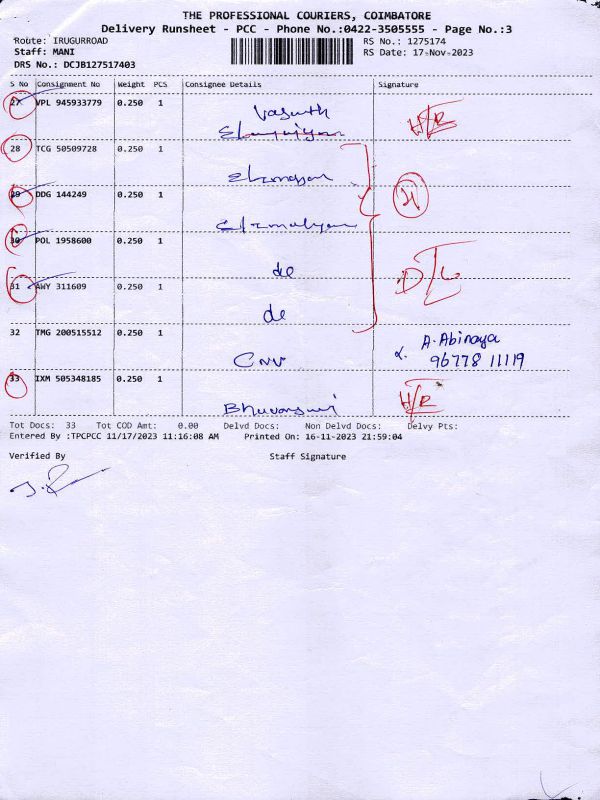 THE PROFESSIONAL COURIERS, COIMBATORE
Delivery Runsheet - PCC - Phone No.:0422-3505555 - Page No.:3
Route: IRUGURROAD
RS No.: 1275174
Staff: MANI
RS Date: 17-Nov-2023
DRS No.: DCJB127517403
S No Consignment No Weight PCS Consignee Details Signature
27 VPL 945933779 0.250 1 Vasanth
H/R
28 TCG 50509728 0.250 1
29 DDG 144249 0.250 1
30 POL 1958600 0.250 1
do
D/L
31 AWY 311609 0.250 1
do
32 TMG 200515512 0.250 1
A. Abinaya
96778 11119
33 IXM 505348185 0.250 1
H/R
Tot Docs: 33 Tot COD Amt: 0.00 Delvd Docs: Non Delvd Docs: Delvy Pts:
Entered By :TPCPCC 11/17/2023 11:16:08 AM Printed On: 16-11-2023 21:59:04
Verified By Staff Signature